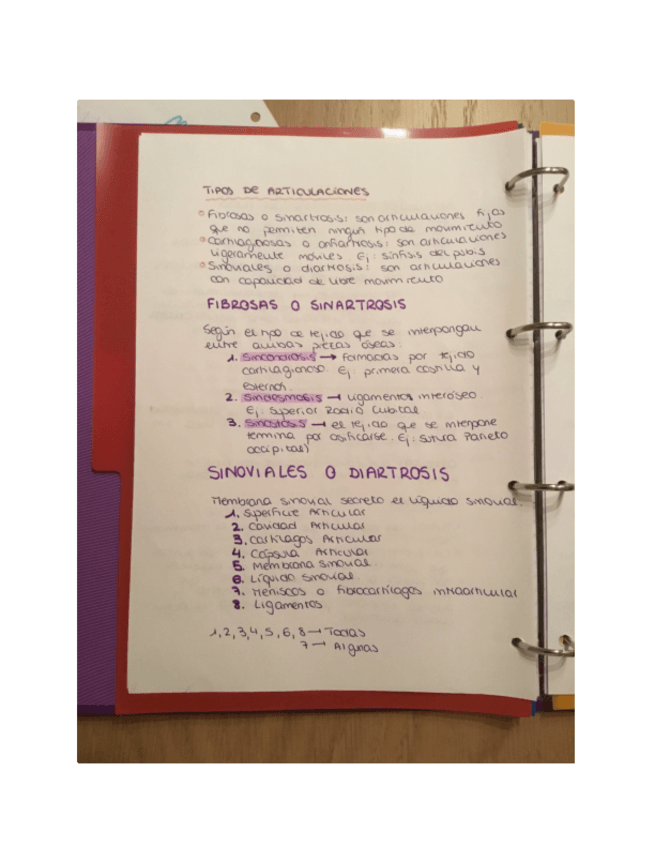 TIPOS DE ARTICULACIONES
Fibrosas o sinartrosis: son articulaciones fijas
que no permiten ningún tipo de movimiento
Cartilaginosas o anfiartrosis: son articulaciones
ligeramente móviles Ej: sínfisis del pubis
Sinoviales o diartrosis: son articulaciones
con capacidad de libre movimiento
FIBROSAS O SINARTROSIS
Según el tipo de tejido que se interpongan
entre ambas piezas óseas.
1. Sincondrosis → formadas por tejido
cartilaginoso. Ej: primera costilla y
esternón.
2. Sindesmosis → ligamentos interóseo.
Ej: Superior Radio Cubital
3. Sinostosis → el tejido que se interpone
termina por osificarse. Ej: sutura Parieto
occipital)
SINOVIALES O DIARTROSIS
Membrana sinovial secreto el líquido sinovial.
1. Superficie Articular
2. Cavidad Articular
3. Cartílagos Articular
4. Cápsula Articular
5. Membrana sinovial.
6. Líquido sinovial.
7. Meniscos o fibrocartílagos intraarticular
8. Ligamentos
1,2,3,4,5,6,8 → Todas
7 → Algunas